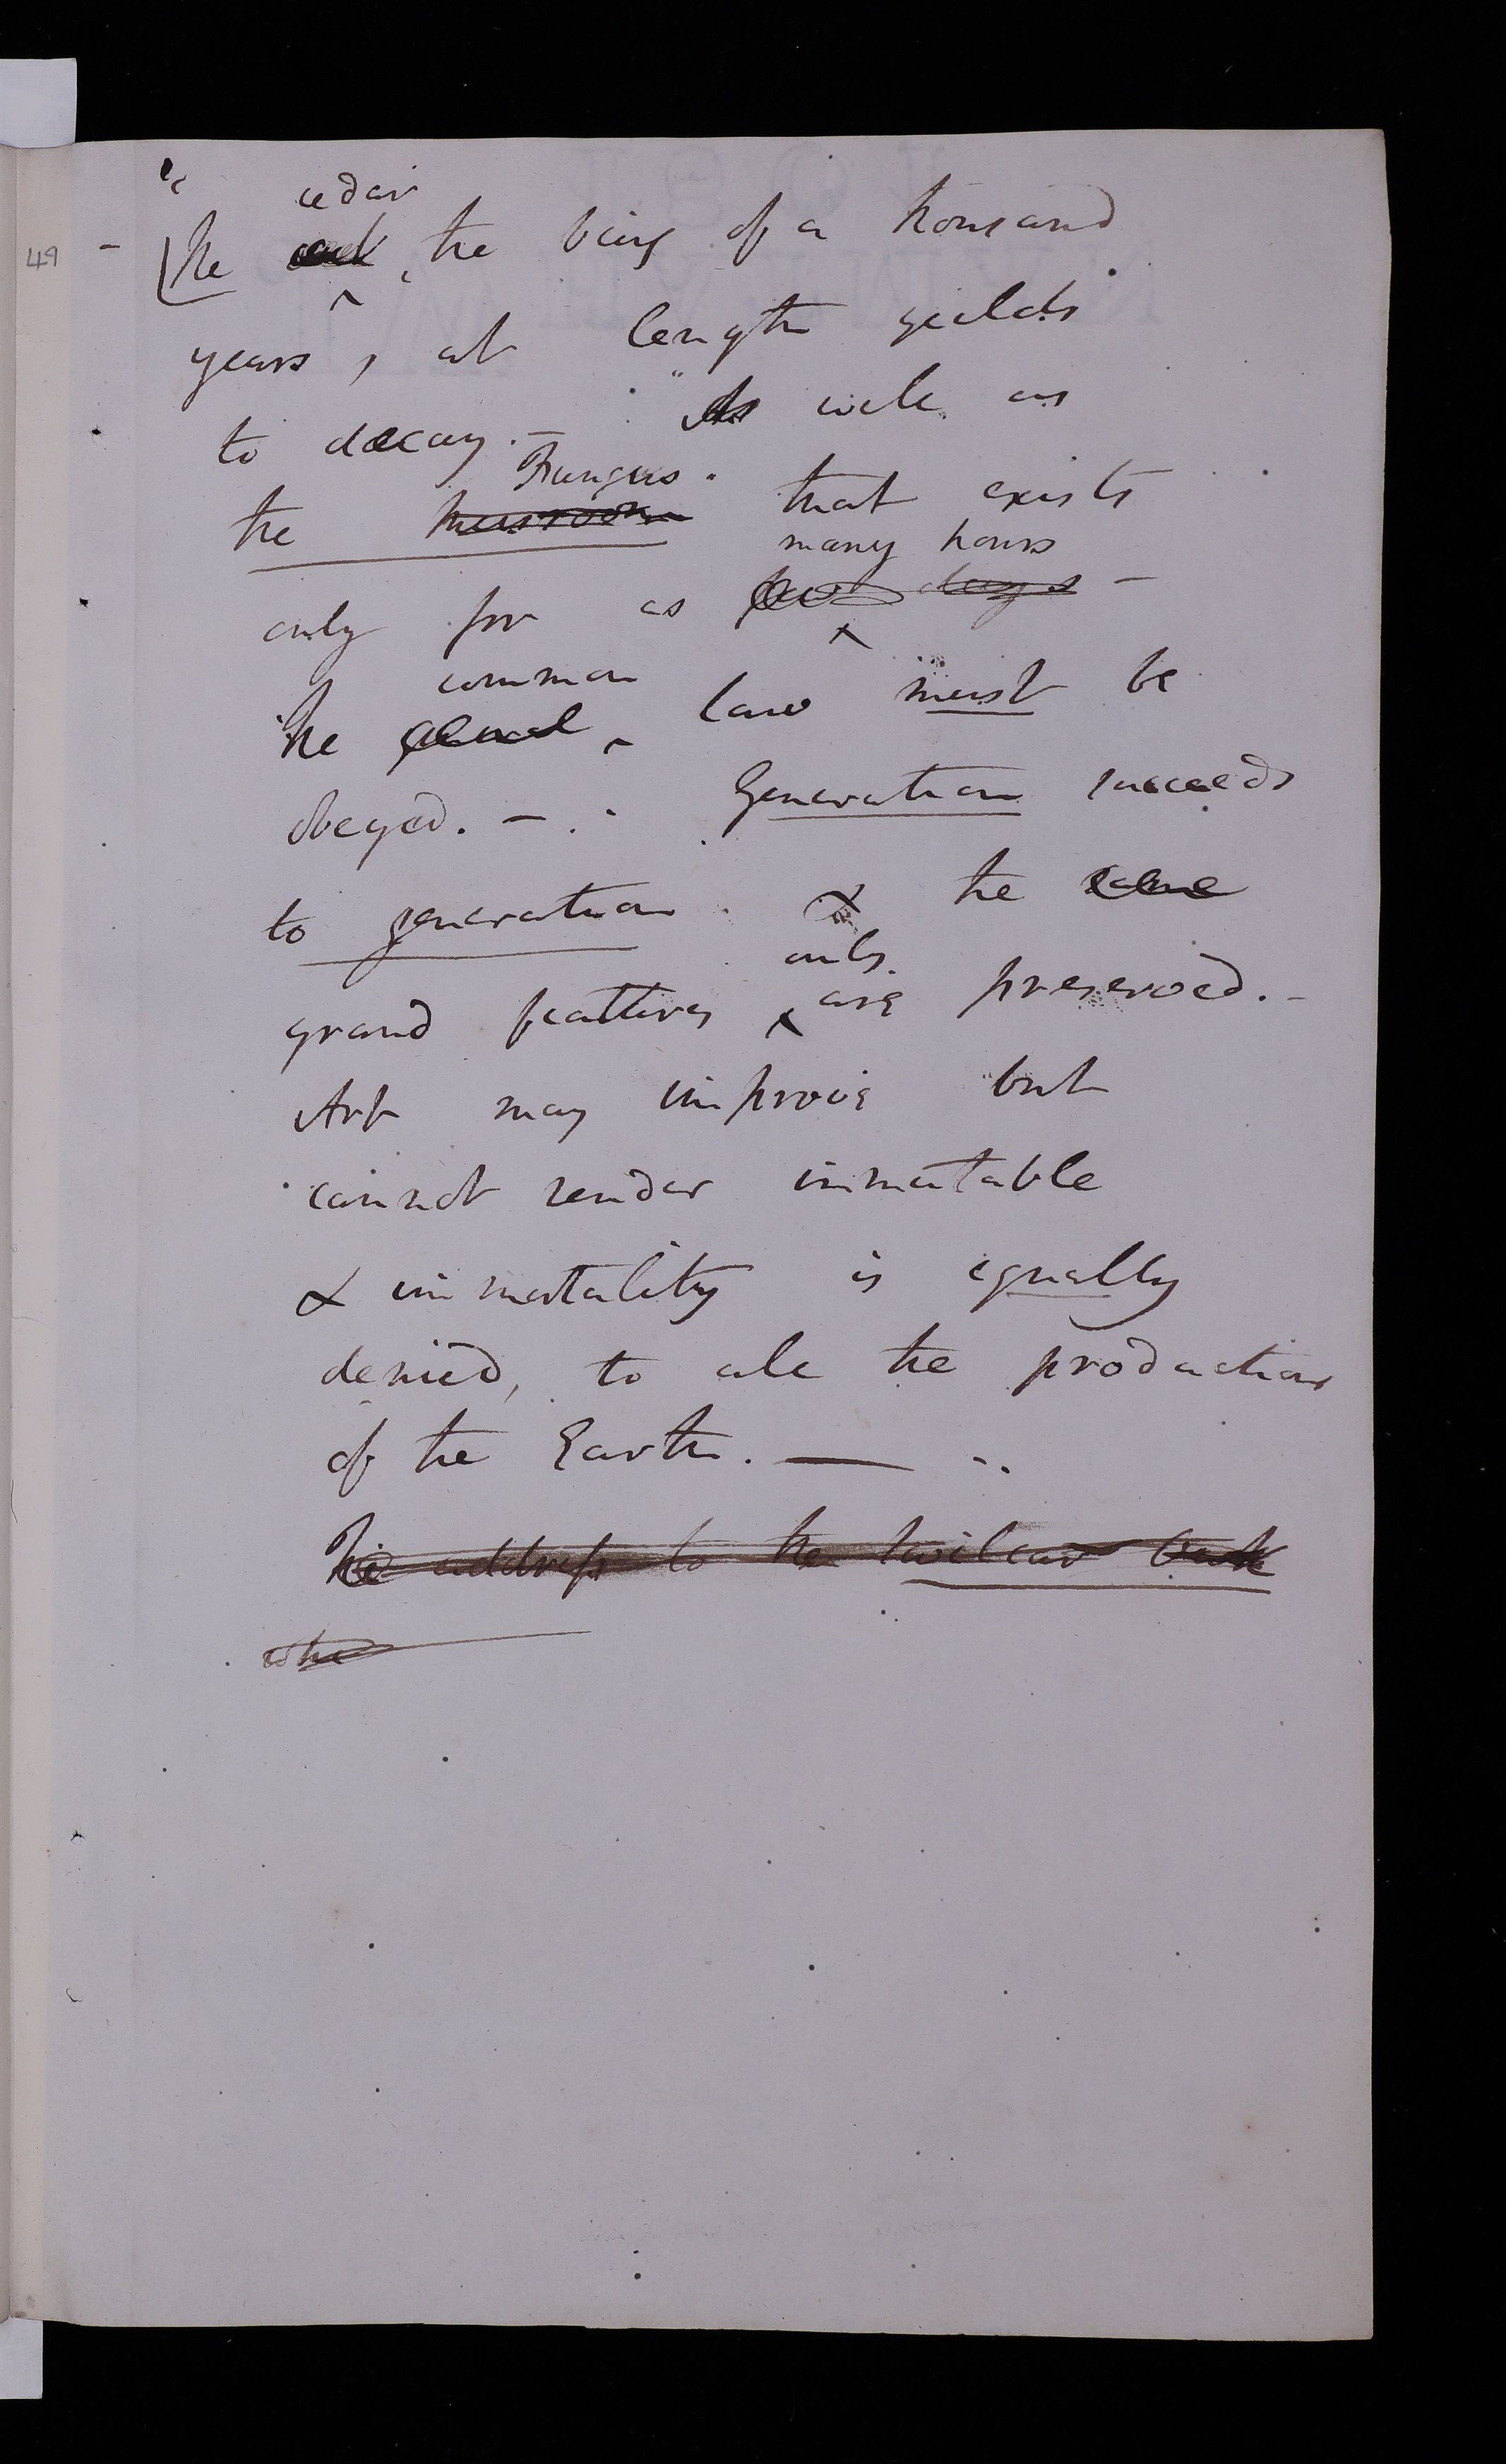 cedar
49 - The oak, the being of a thousand
years, at length yields
to decay. - As well as
Fungus
the musroom that exists
many hours
only for as few days -
common
The general law must be
obeyed. - Generation succeeds
to generation & the same
only
grand features are preserved. -
Art may improve but
cannot render immutable
& immortality is equally
denied, to all the productions
of the Earth. —
The address to the Oak
who